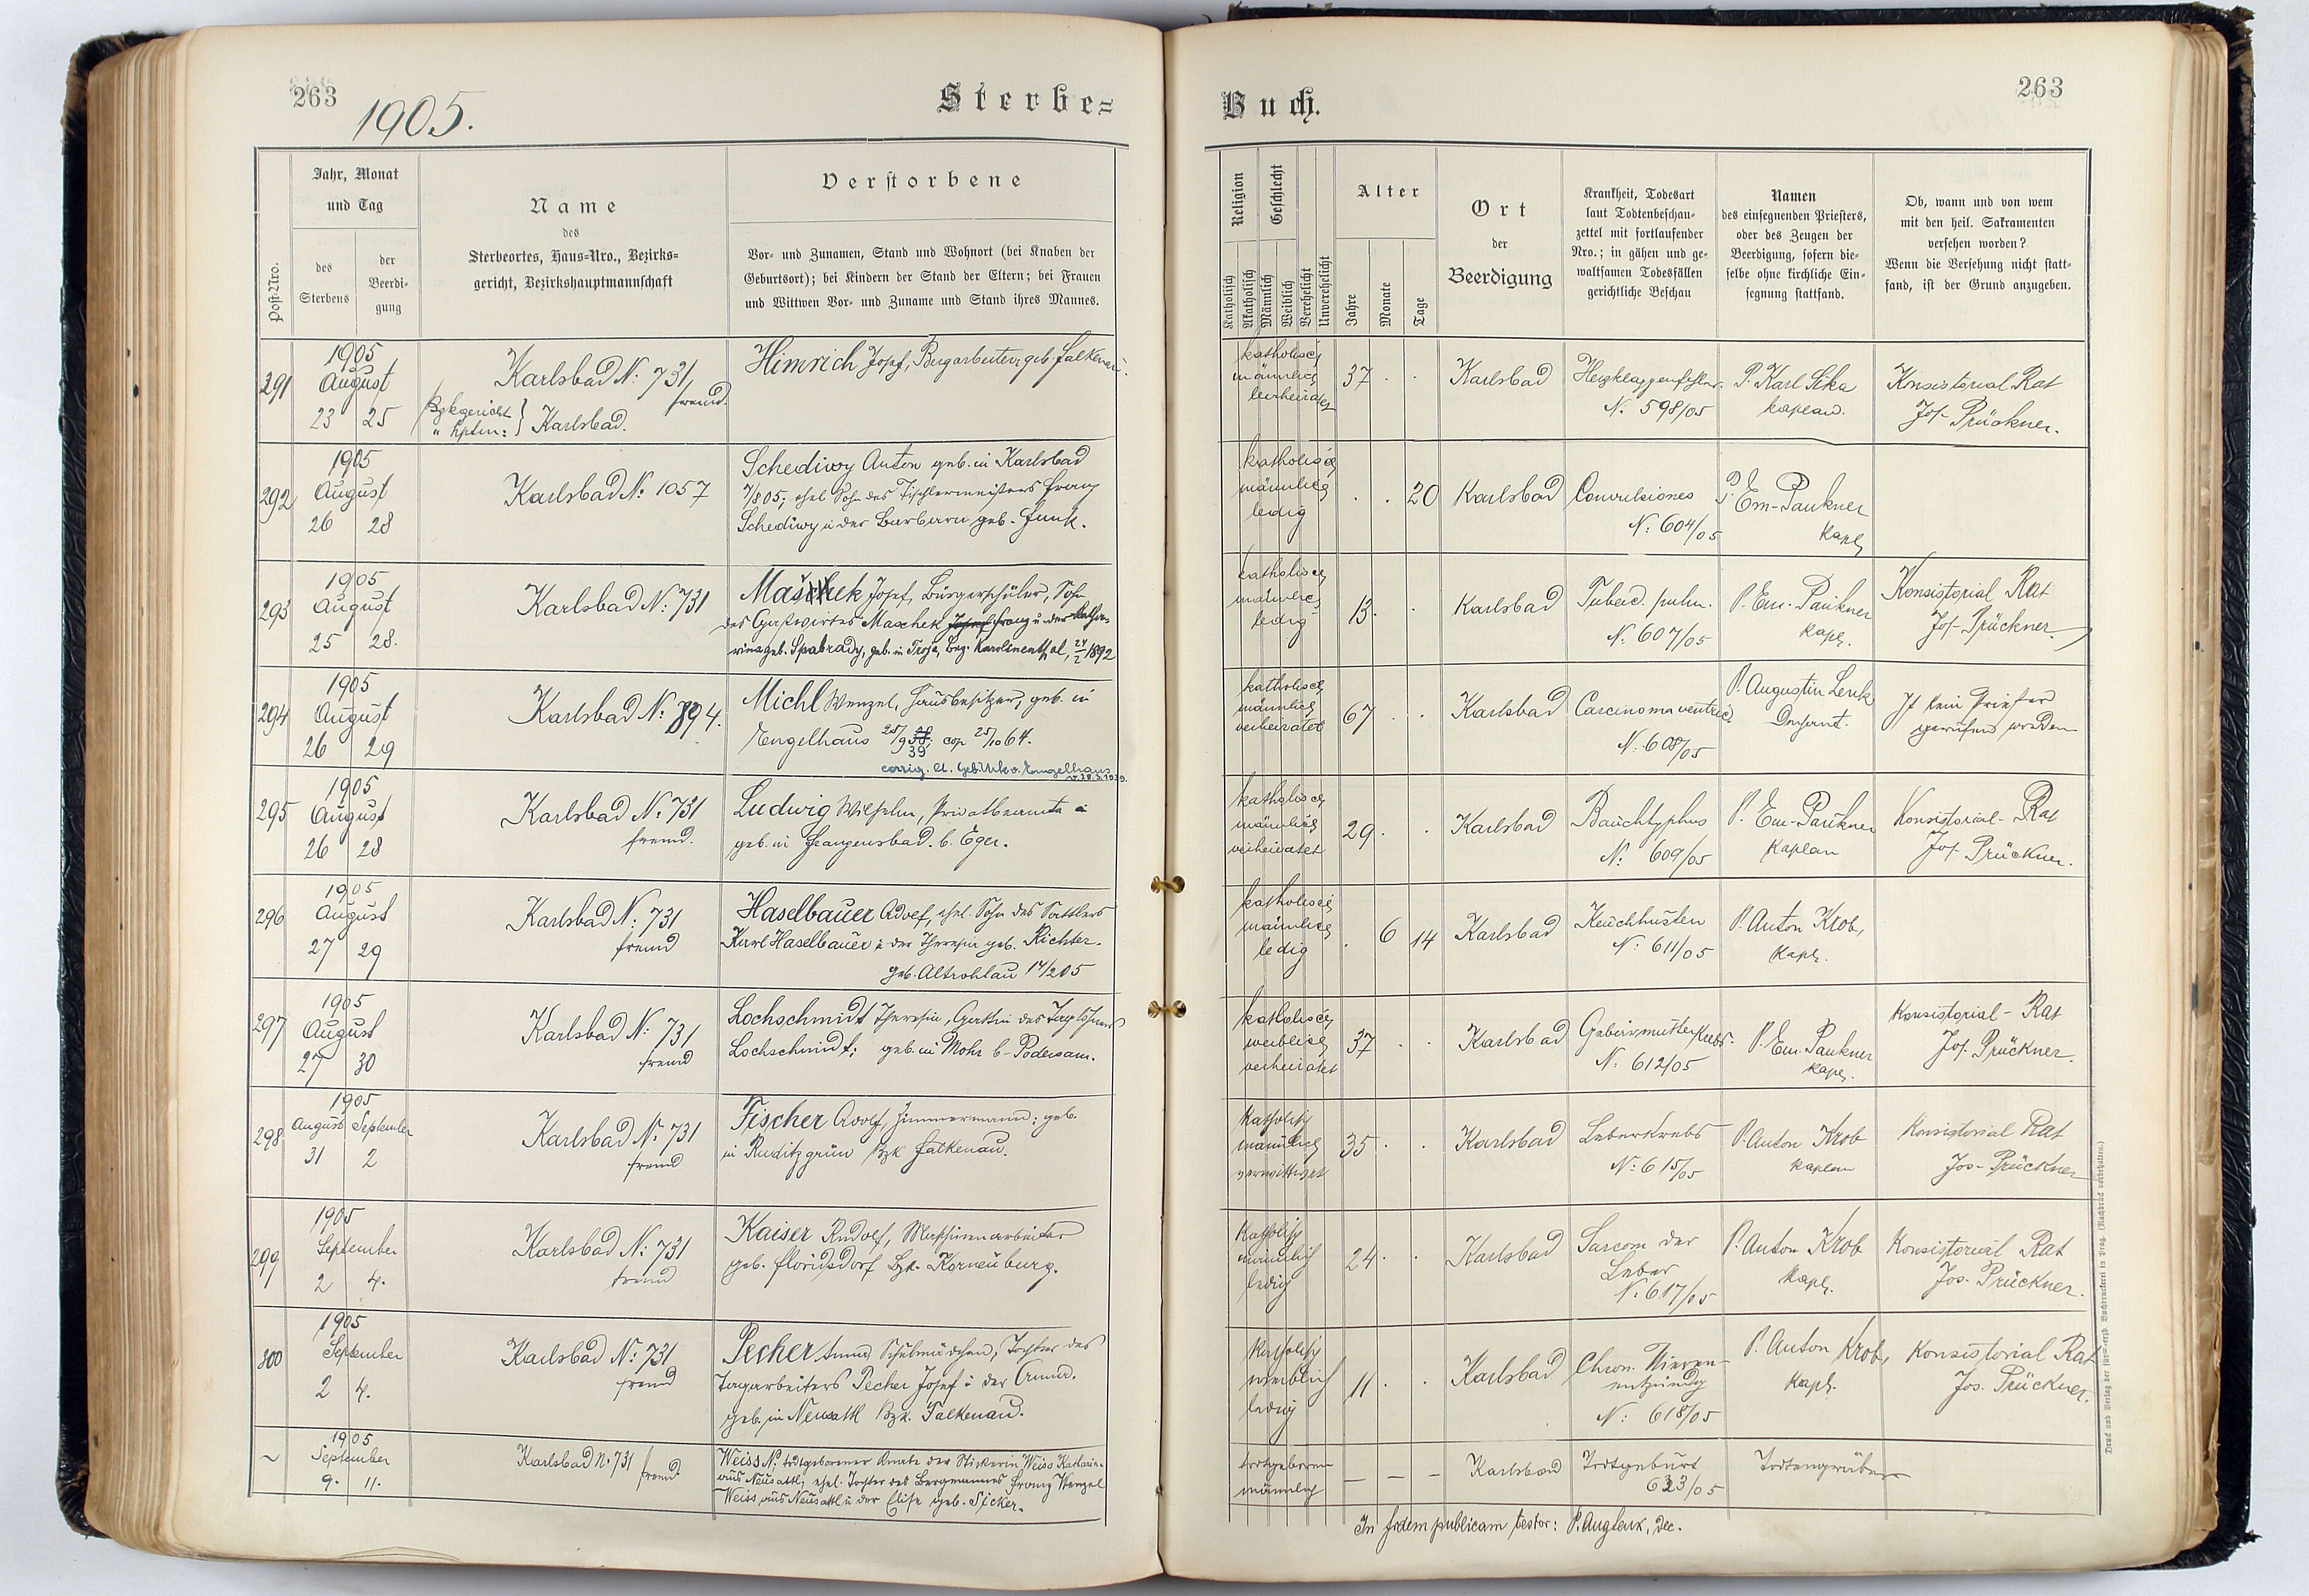 263
1905.
Sterbe-
Jahr, Monat
und Tag
Post-Nro.
des
Sterbens
der
Beerdi-
gung
Name
des
Sterbeortes, Haus-Nro., Bezirks-
gericht, Bezirkshauptmannschaft
Verstorbene
Vor- und Zunamen, Stand und Wohnort (bei Knaben der
Geburtsort); bei Kindern der Stand der Eltern; bei Frauen
und Wittwen Vor- und Zuname und Stand ihres Mannes.
291
1905
August
23 25
Karlsbad N: 731,
fremd.
Bzkgericht
" hptm: } Karlsbad.
Himrich Josef, Bergarbeiter, geb. Falkenau.
292
1905
August
26 28
Karlsbad N: 1057
Schediwy Anton geb. in Karlsbad
7/8 05; ehel Sohn des Tischlermeisters Franz
Schediwy u der Barbara geb. Funk.
293
1905
August
25 28.
Karlsbad N: 731
Maschek Josef, Bürgerschüler, Sohn
des Gastwirtes Maschek Josef Franz u. der Katha-
rina geb. Spatrady, geb. in Troja, Bez. Karolinenthal, 24/2 1892
294
1905
August
26 29
Karlsbad N: 894.
Michl Wenzel, Hausbesitzer, geb. in
Engelhaus 25/9 38; cop 25/10 64.
39
corrig. lt. Geb. Urk v. Engelhaus
295
1905
August
26 28
Karlsbad N: 731
fremd.
Ludwig Wilhelm, Privatbeamte
geb. in Franzensbad. b. Eger.
296
1905
August
27 29
Karlsbad N: 731
fremd
Haselbauer Adolf, ehel. Sohn des Sattlers
Karl Haselbauer u der Theresia geb. Richter.
geb. Altrohlau 14/2 05
297
1905
August
27 30
Karlsbad N: 731
fremd
Lochschmidt Theresia, Gattin des Taglöhners
Lochschmidt; geb. in Mohr b- Podersam.
298
1905
August September
31 2
Karlsbad N: 731
fremd
Fischer Adolf, Zimmermann; geb.
in Ruditzgrün Bzk Falkenau.
299
1905
September
2 4.
Karlsbad N: 731
fremd
Kaiser Rudolf, Maschinenarbeiter
geb. Floridsdorf Bzk. Korneuburg.
300
1905
September
2 4.
Karlsbad N: 731
fremd
Pecher Anna Schulmädchen, Tochter des
Tagarbeiters Pecher Josef u der Anna.
geb. in Neusattl Bzk. Falkenau.
~
1905
September
9. 11.
Karlsbad N. 731 fremd
Weiss N: todtgeborener Knabe der Stickerin Weiss Katharina
aus Neusattl, ehel. Tochter des Bergmannes Franz Wenzel
Weiss aus Neusattl u der Elise geb. Sicker.
Buch.
263
Religion
Geschlecht
Katholisch
Akatholisch
Männlich
Weiblich
Verehelicht
Unverehelicht
Alter
Jahre
Monate
Tage
Ort
der
Beerdigung
Krankheit, Todesart
laut Todtenbeschau-
zettel mit fortlaufender
Nro.; in gähen und ge-
waltsamen Todesfällen
gerichtliche Beschau
Namen
des einsegnenden Priesters,
oder des Zeugen der
Beerdigung, sofern die-
selbe ohne kirchliche Ein-
segnung stattfand.
Ob, wann und von wem
mit den heil. Sakramenten
versehen worden?
Wenn die Versehung nicht statt-
fand, ist der Grund anzugeben.
katholisch
männlich
verheiratet
37 . .
Karlsbad
Herzklappenfehler
N. 598/05
P. Karl Sika
kaplan.
Konsistorial Rat
Jos- Prückner.
katholisch
männlich
ledig
. . 20
Karlsbad
Convulsiones
N: 604/05
P. Em- Paukner
Kapl
katholisch
männlich
ledig
13. .
Karlsbad
Tuberc. pulm.
N. 607/05
P. Em. Paukner
Kapl.
Konsistorial Rat
Jos- Prückner.
katholisch
männlich
verheiratet
67 . .
Karlsbad
Carcinoma ventric
N: 608/05
P. Augustin Lenk
Dechant.
Ist kein Priester
gerufen worden
katholisch
männlich
verheiratet
29 . .
Karlsbad
Bauchtyphus
N: 609/05
P. Em- Paukner
Kaplan
Konsistorial- Rat
Jos- Prückner.
katholisch
männlich
ledig
. 6 14
Karlsbad
Keuchhusten
N: 611/05
P. Anton Krob,
Kapl.
katholisch
weiblich
verheiratet
37 . .
Karlsbad
Gebärmutterkrebs.
N: 612/05
P. Em. Paukner
Kapl.
Konsistorial- Rat
Jos. Prückner.
Katholisch
männlich
verwittwet
35 . .
Karlsbad
Leberkrebs
N: 615/05
P. Anton Krob
Kaplan
Konsistorial Rat
Jos- Prückner
Katholisch
männlich
ledig
24 . .
Karlsbad
Sarcom der
Leber
N: 617/05
P. Anton Krob
Kapl.
Konsistorial Rat
Jos. Prückner.
Katholisch
weiblich
ledig
11 . .
Karlsbad
Chron. Nieren-
entzündg
N: 618/05
P. Anton Krob,
Kapl.
Konsistorial Rat
Jos. Prückner.
todtgeboren
männlich
— — —
Karlsbad
Todtgeburt
623/05
Todtengräber
In fidem publicam testor: P. Aug Lenk, Dec.
Druck und Verlag der fürsterzb. Buchdruckerei in Prag. (Nachdruck vorbehalten.)